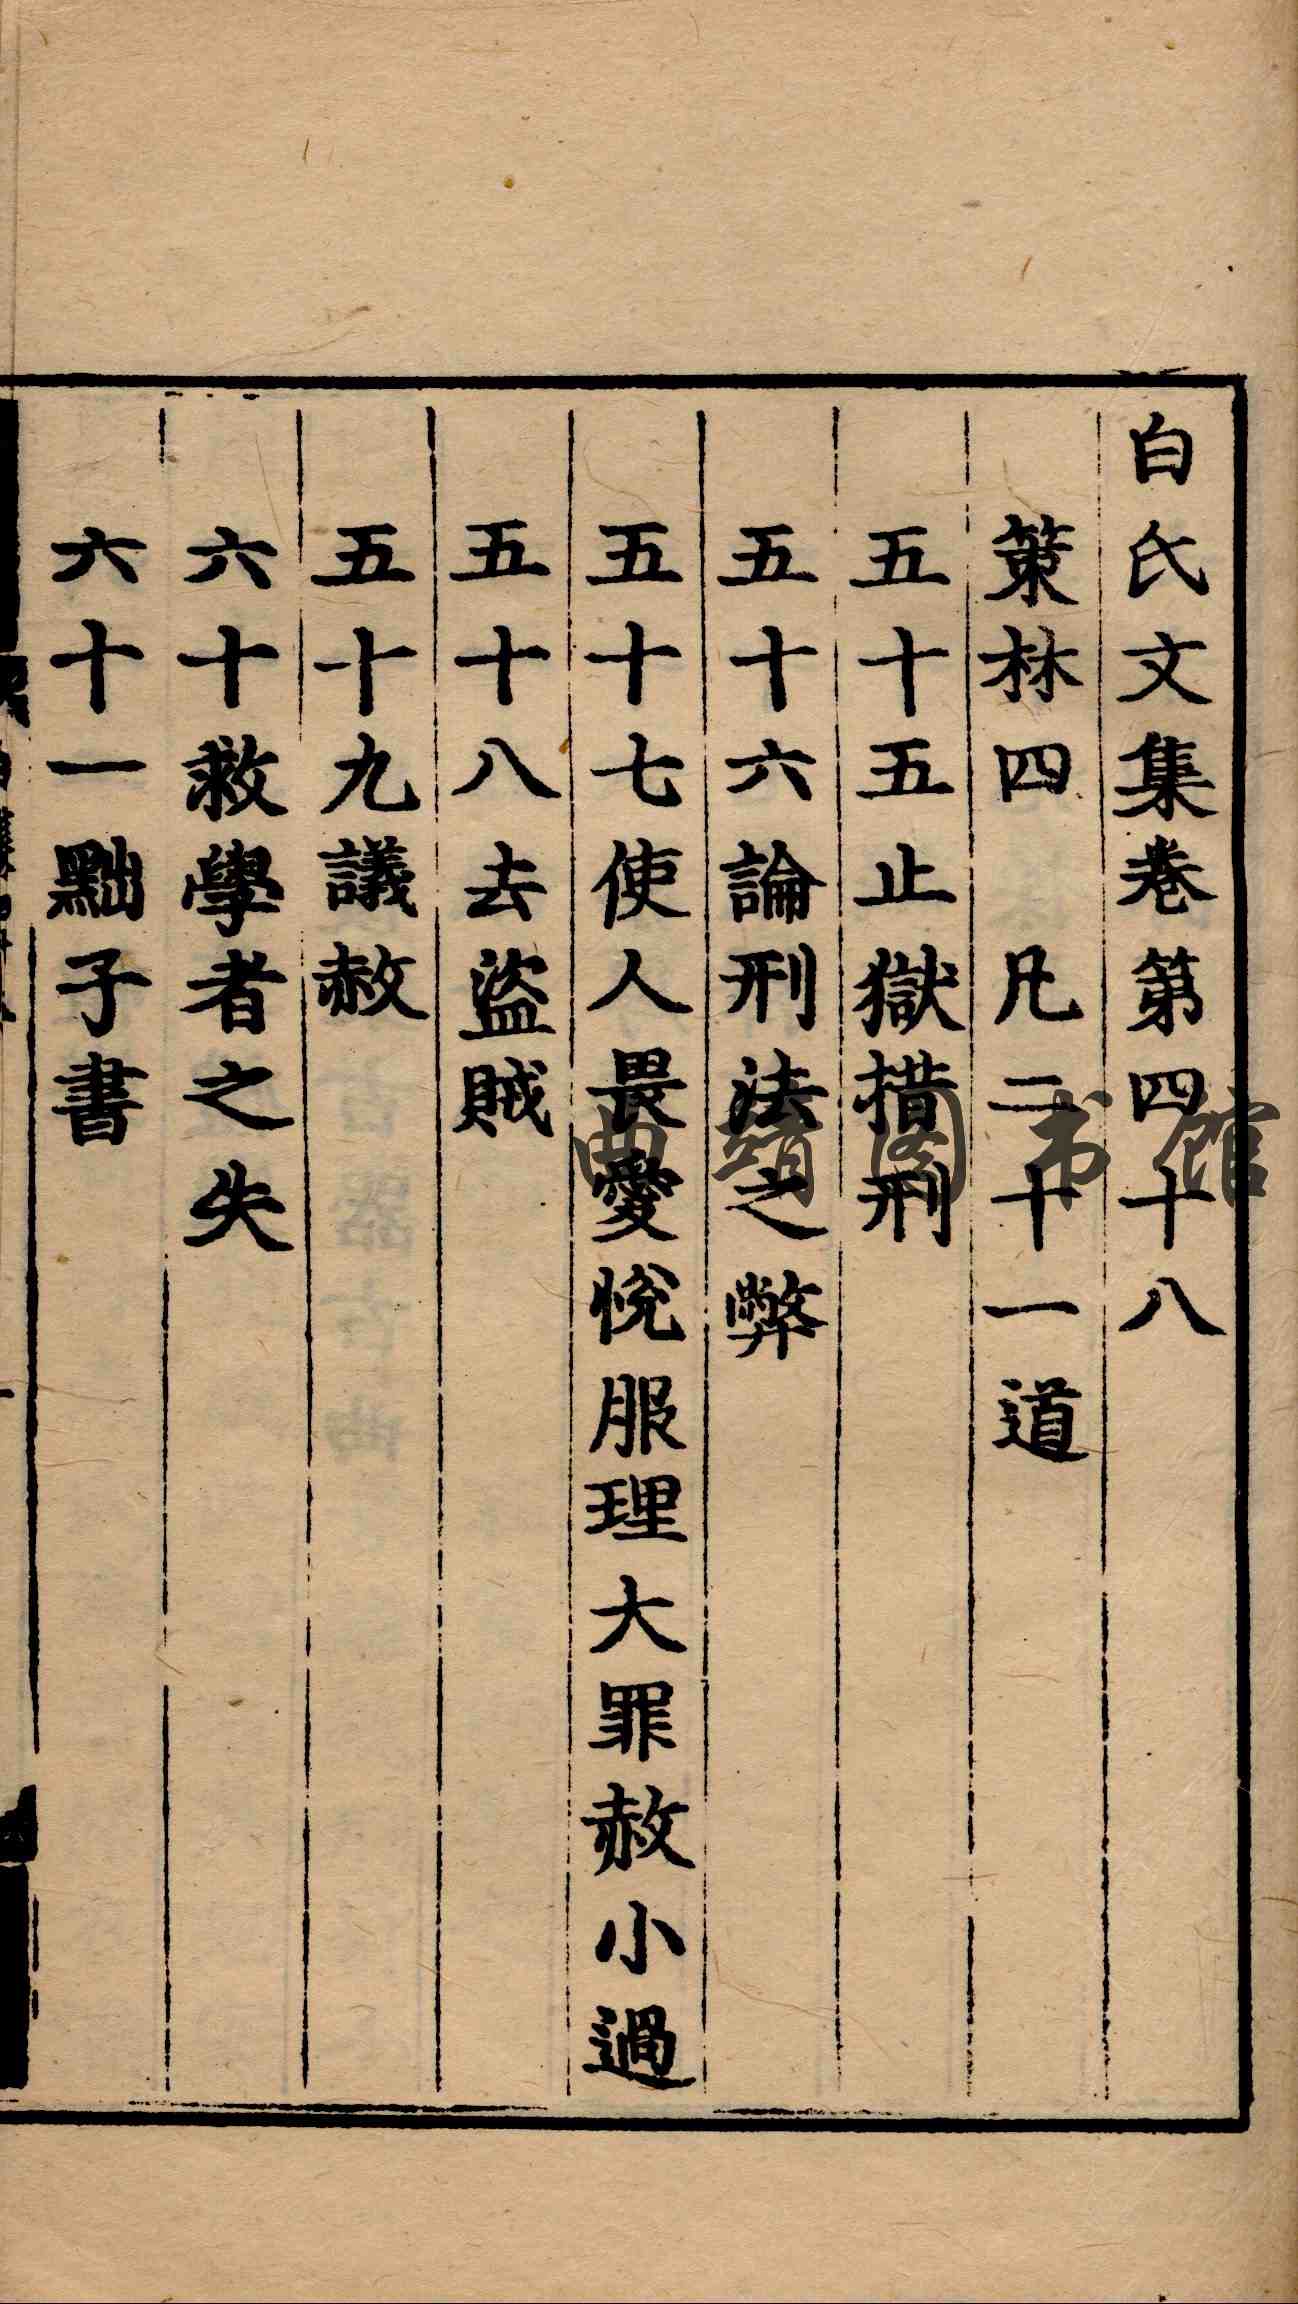 白氏文集卷第四十八
策林四 凡二十一道
五十五止獄措刑
五十六論刑法之弊
五十七使人畏愛悅服理大罪赦小過
五十八去盜賊
五十九議赦
六十救學者之失
六十一黜子書
曲靖图书馆